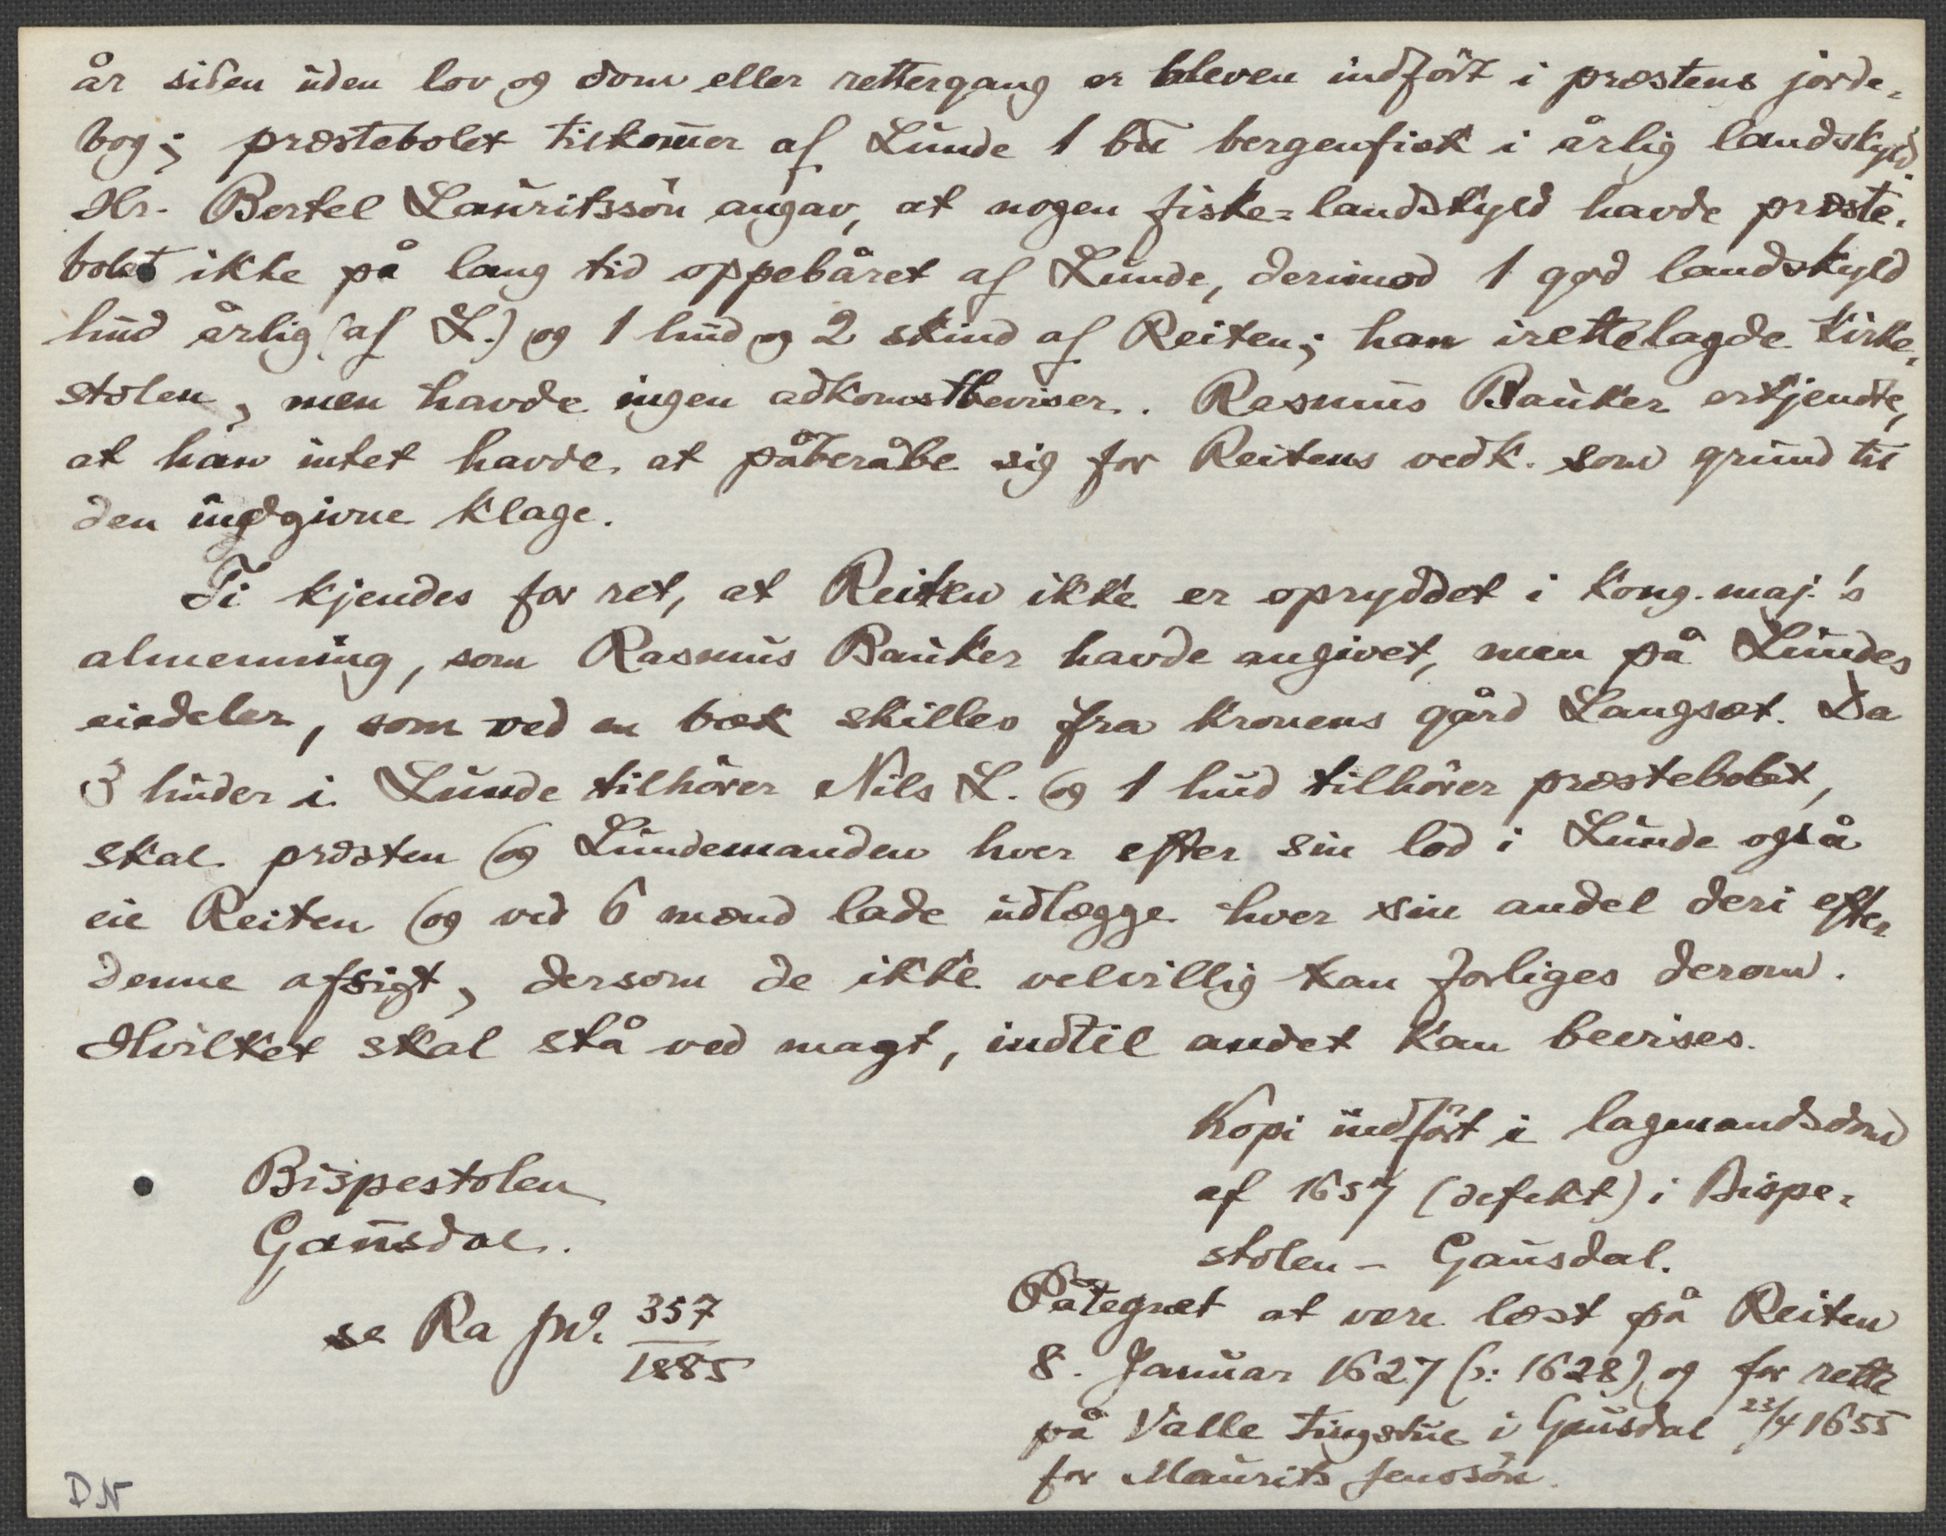 år siden uden lov og dom eller rettergang er bleven indført i præstens jorde-
bog; præstebolet tilkommer af Lunde 1 bdt bergenfisk i årlig landskyld.
Hr. Bertel Lauritssøn angav, at nogen fiske-landskyld havde præste-
bolet ikke på lang tid oppebåret af Lunde, derimod 1 god landskyld
hud årlig (af L.) og 1 hud og 2 skind af Reiten; han irettelagde kirke-
stolen, men havde ingen adkomstbeviser. Rasmus Bauker erkjendte,
at han intet havde at påberåbe sig for Reitens vedk. som grund til
den indgivne klage.
Ti kjendes for ret, at Reiten ikke er opryddet i kong. maj.'s
almenning, som Rasmus Bauker havde angivet, men på Lundes
eiedeler, som ved en bæk skilles fra kronens gård Langsæt. Da
3 huder i Lunde tilhører Nils L. og 1 hud tilhører præstebolet,
skal præsten og Lundemanden hver efter sin lod i Lunde også
eie Reiten og ved 6 mænd lade udlægge hver sin andel deri efter
denne afsigt, dersom de ikke velvillig kan forliges derom.
Hvilket skal stå ved magt, indtil andet kan bevises.
Kopi indført i lagmandsdom
af 1657 (defekt) i Bispe-
stolen - Gausdal.
Påtegnet at være læst på Reiten
8. Januar 1627 (ɔ: 1628) og for rette
på Valle tingstue i Gausdal 23/4 1655
for Maurits Jenssøn.
Bispestolen
Gausdal.
se Ra jnr. 357/1885
DN